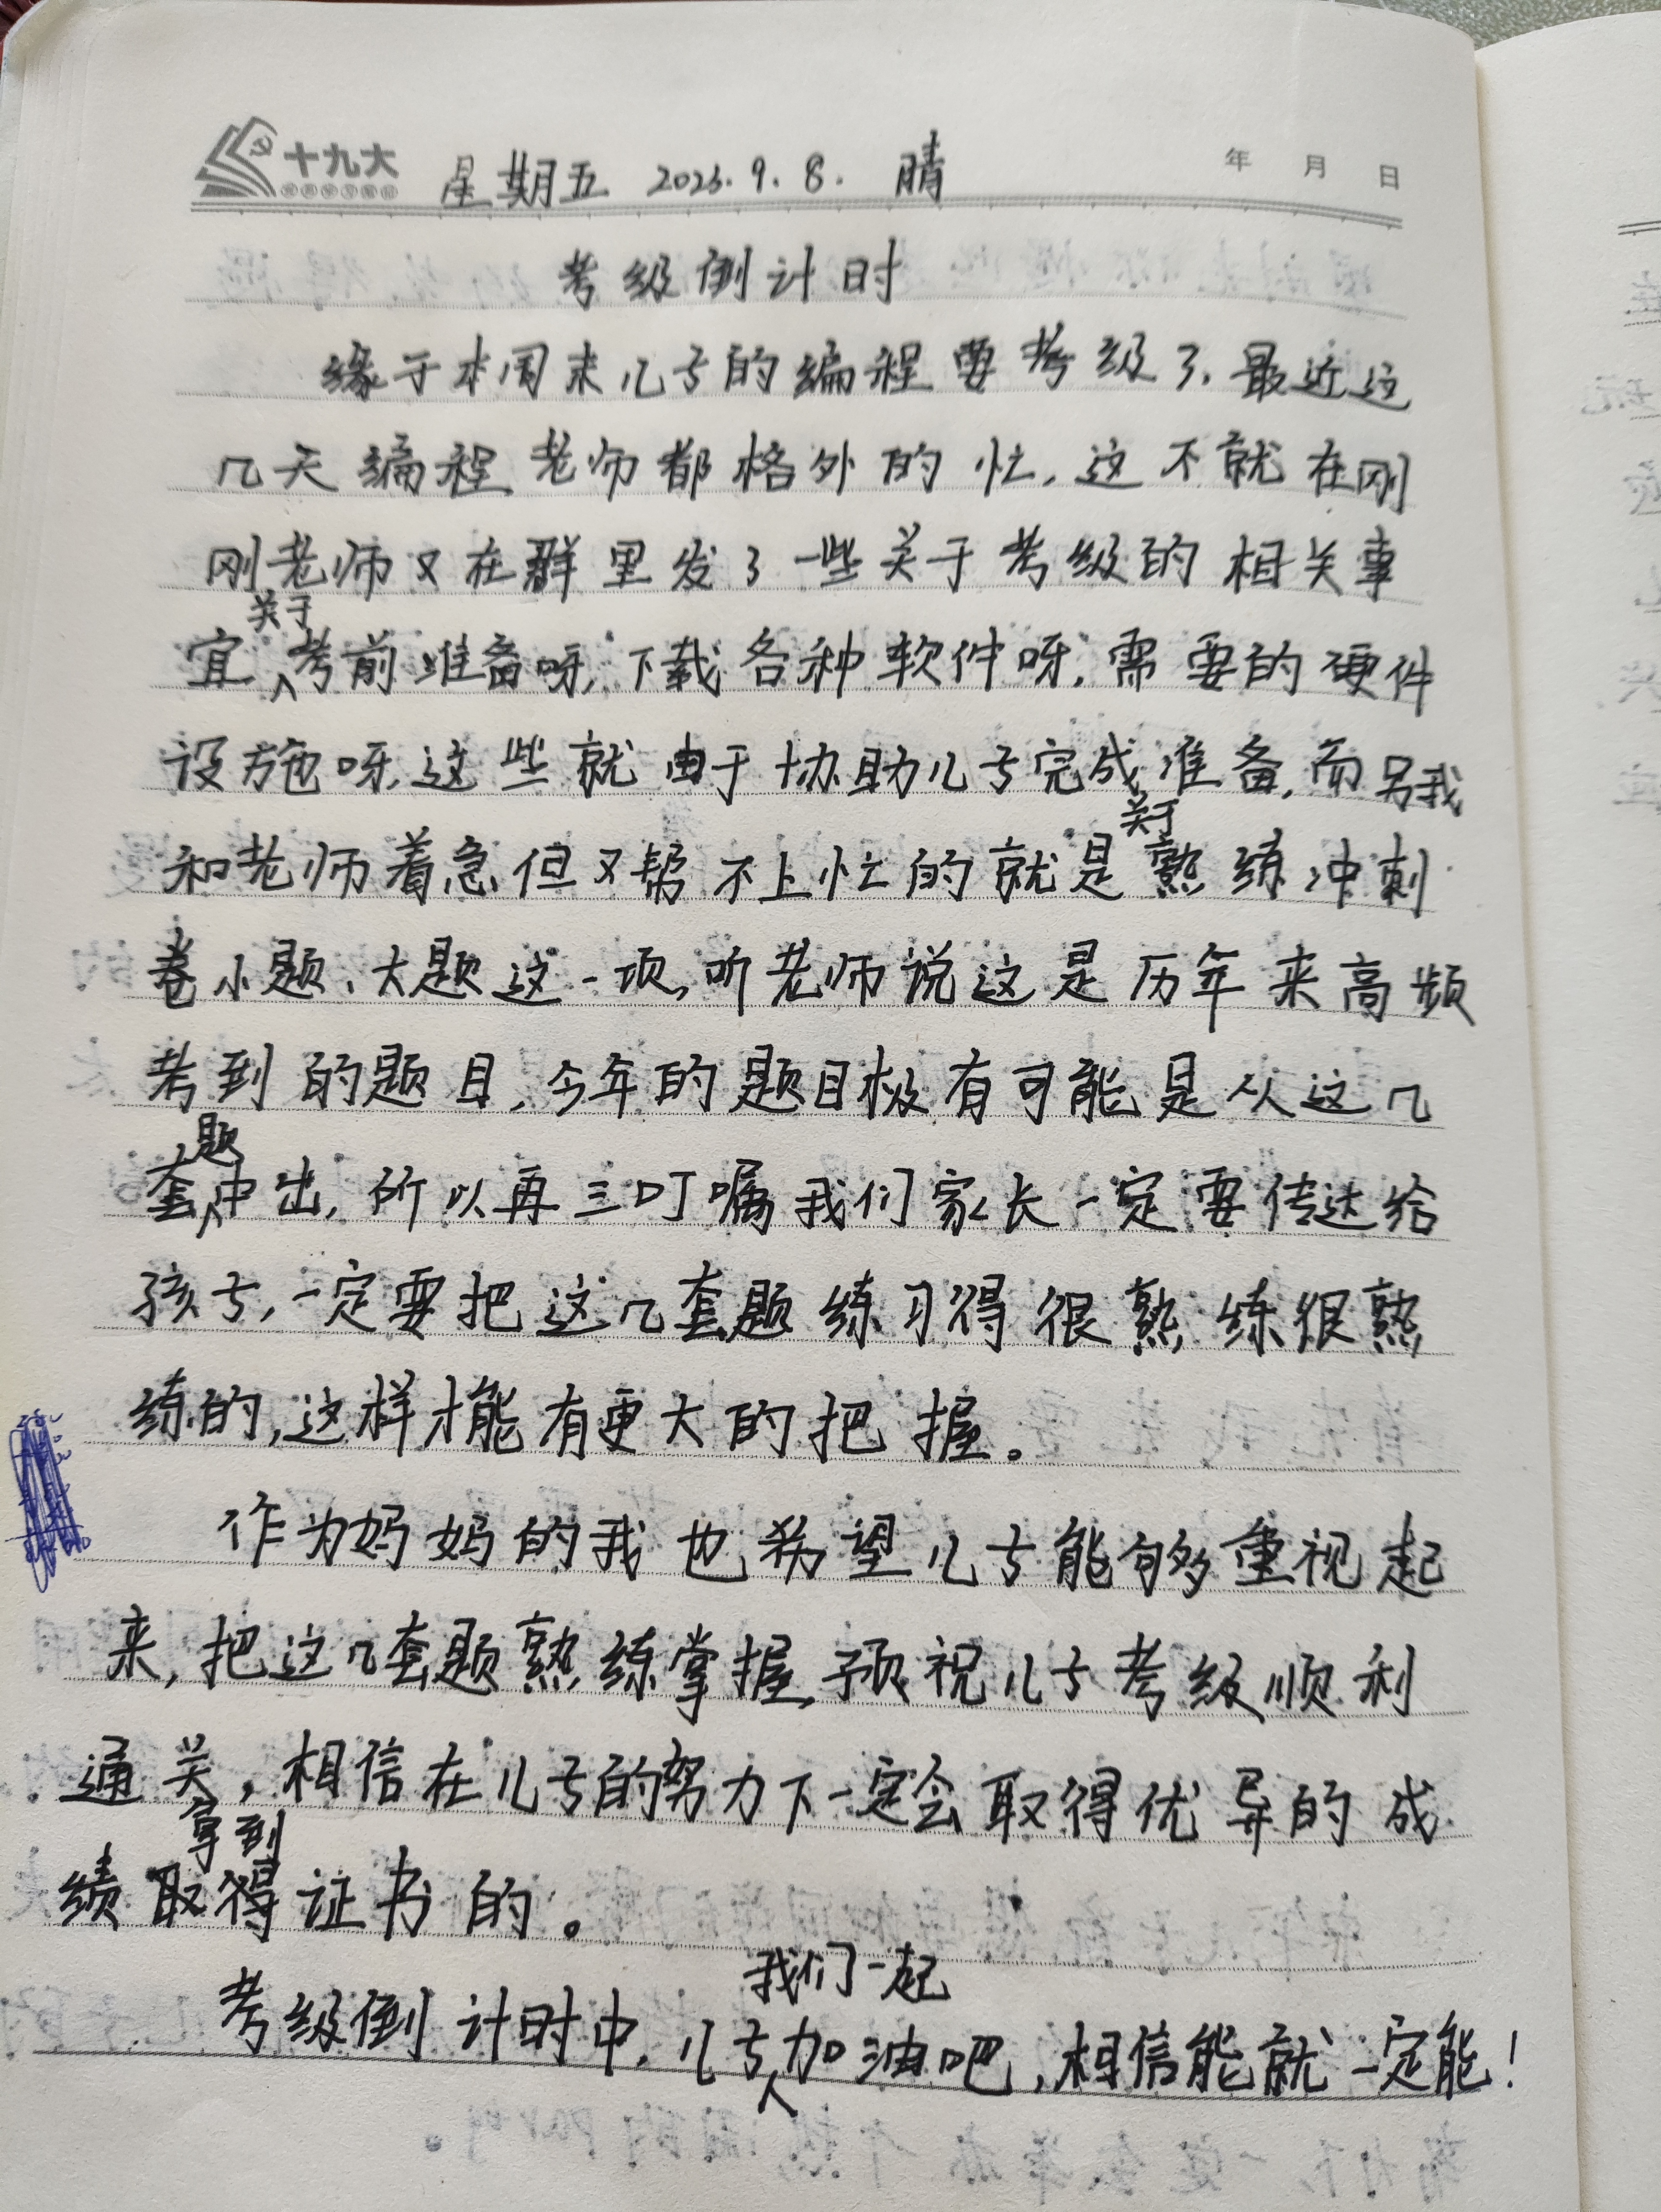 十九大
星期五 2023.9.8. 晴
年 月 日
考级倒计时
缘于本周末儿子的编程要考级了,最近这
几天编程老师都格外的忙,这不就在刚
刚老师又在群里发了一些关于考级的相关事
宜关于考前准备呀,下载各种软件呀,需要的硬件
设施呀,这些就由于协助儿子完成准备,而另我
和老师着急但又帮不上忙的就是关于熟练冲刺
卷小题、大题这一项,听老师说这是历年来高频
考到的题目,今年的题目极有可能是从这几
套题中出,所以再三叮嘱我们家长一定要传达给
孩子,一定要把这几套题练习得很熟练很熟
练的,这样才能有更大的把握。
作为妈妈的我也希望儿子能够重视起
来,把这几套题熟练掌握,预祝儿子考级顺利
通关,相信在儿子的努力下一定会取得优异的成
拿到
绩取得证书的。
考级倒计时中,儿子我们一起加油吧,相信能就一定能!